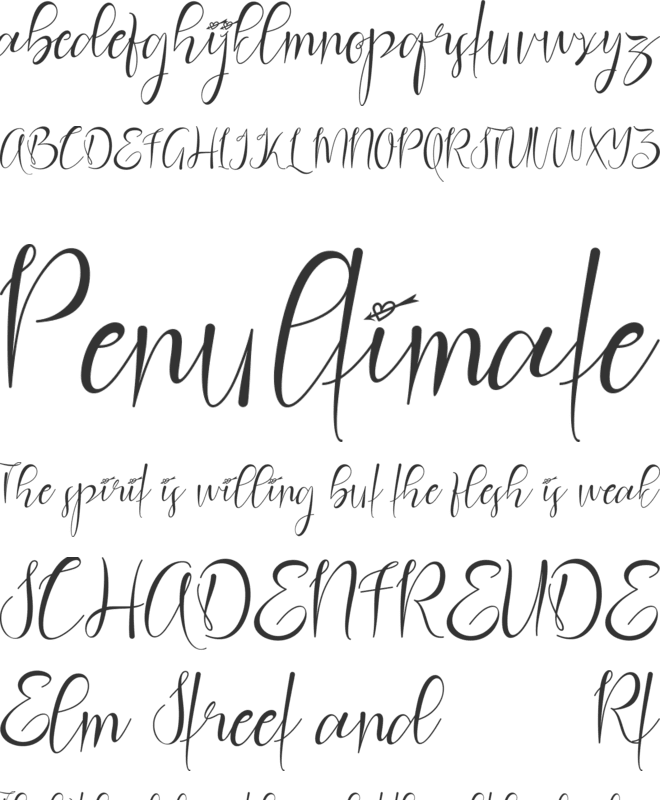 abcdefghijklmnopqrstuvwxyz
ABCDEFGHIJKLMNOPQRSTUVWXYZ
Penultimate
The spirit is willing but the flesh is weak
SCHADENFREUDE
Elm Street and Rt